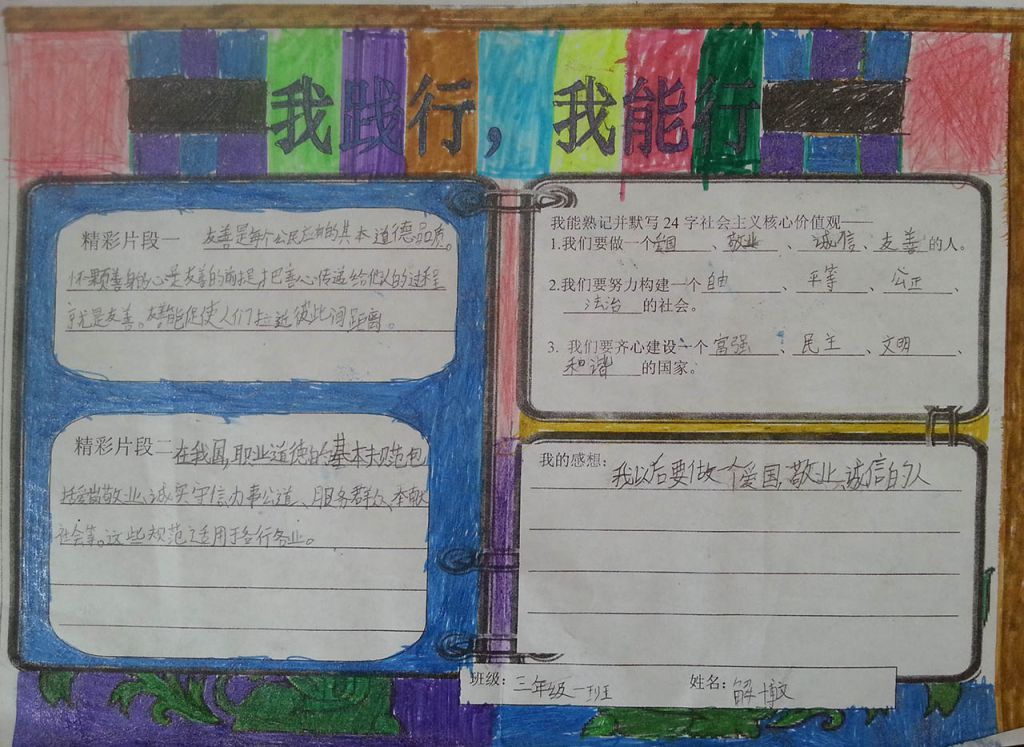 我践行，我能行
精彩片段一 友善是每个公民应有的基本道德品质。
怀一颗善良的心是友善的前提,把善心传递给他人的过程
就是友善。友善能促使人们拉近彼此间距离。
精彩片段二 在我国,职业道德的基本规范包
括爱岗敬业、诚实守信、办事公道、服务群众、奉献
社会等。这些规范适用于各行各业。
我能熟记并默写 24 字社会主义核心价值观——
1.我们要做一个爱国、敬业、诚信、友善的人。
2.我们要努力构建一个自由、平等、公正、
法治的社会。
3. 我们要齐心建设一个富强、民主、文明、
和谐的国家。
我的感想：我以后要做一个爱国,敬业、诚信的人
班级：三年级一班 姓名：解